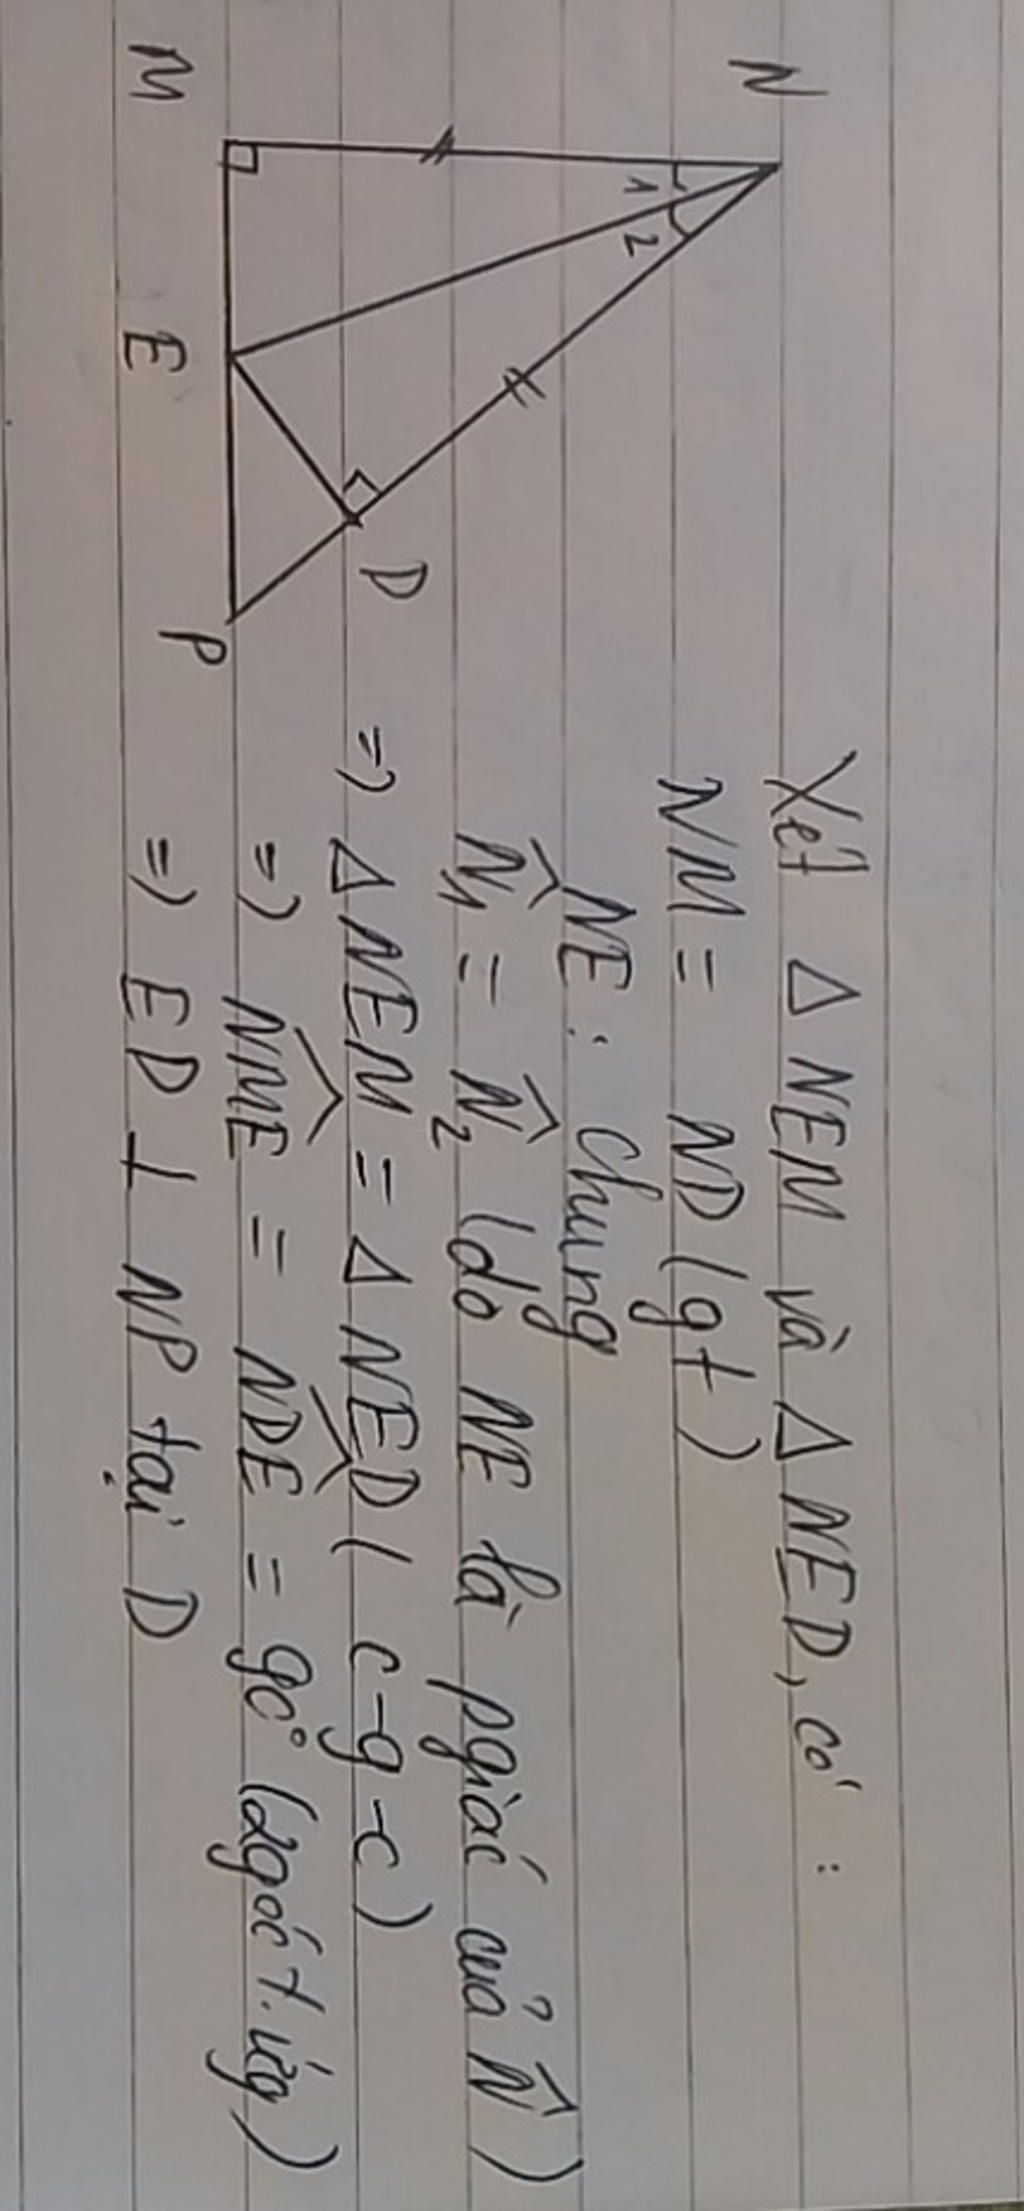 N
1 2
M
E
D
P
Xét Δ NEM và Δ NED, có :
NM = ND (gt)
NE : chung
N̂₁ = N̂₂ (do NE là pgiác của N̂)
=) Δ NEM = Δ NED ( c-g-c)
=) N͡ME = N͡DE = 90° (2góc t.ứg)
=) ED ⊥ NP tại D